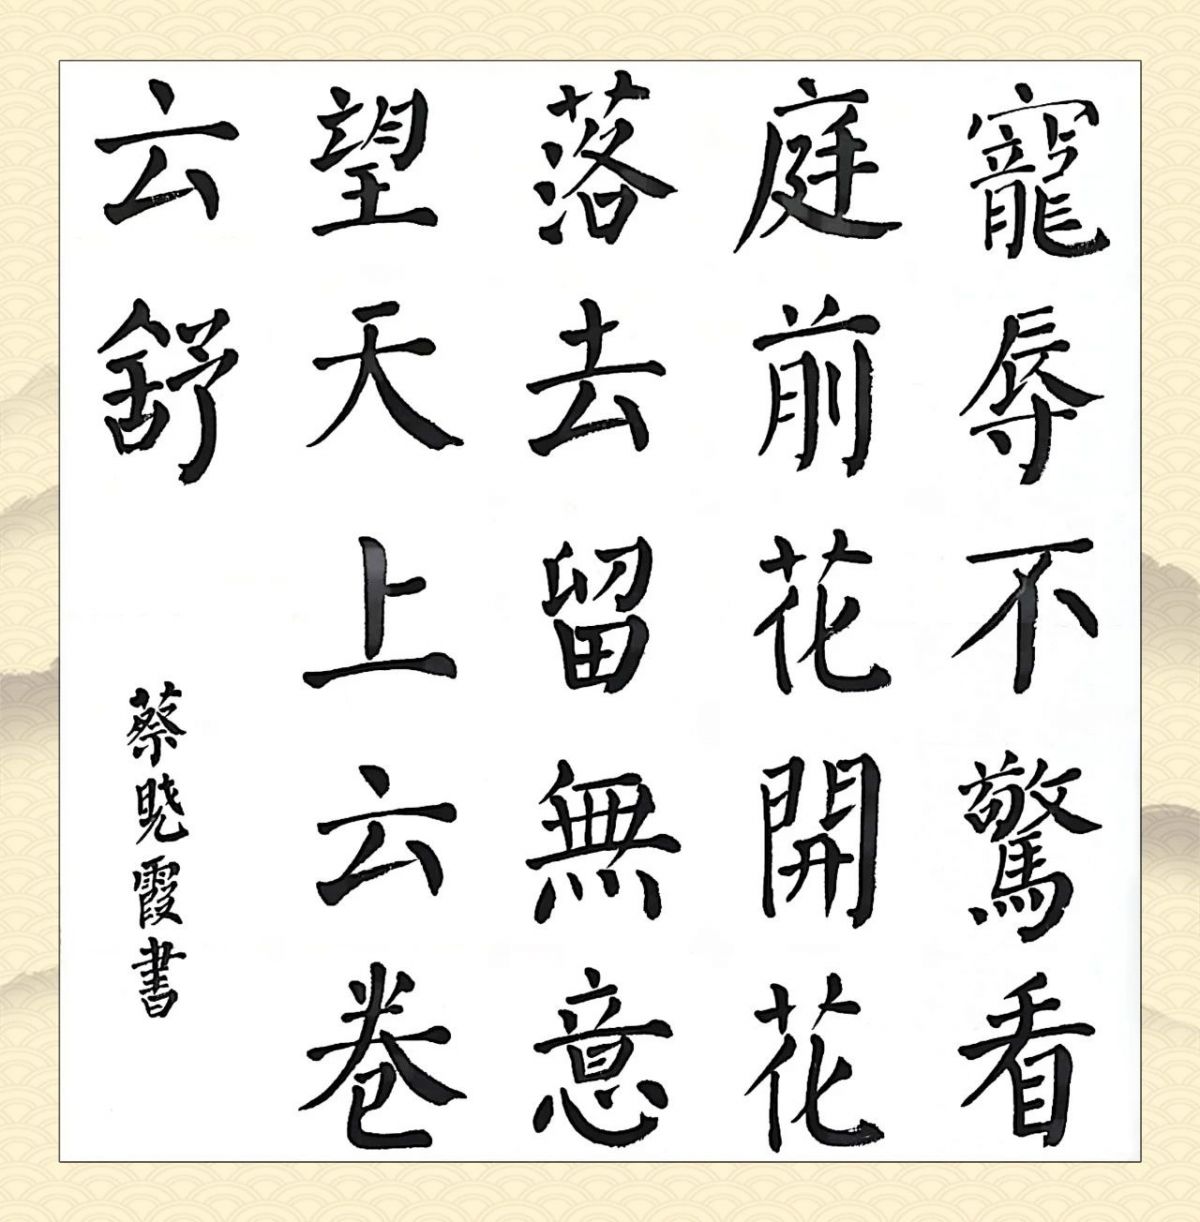 寵辱不驚看
庭前花開花
落去留無意
望天上云卷
云舒
蔡晓霞書